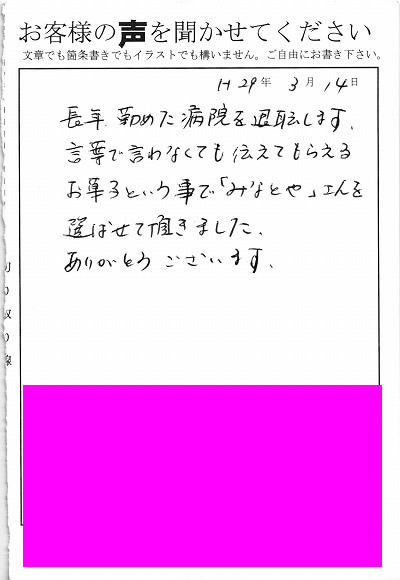 お客様の声を聞かせてください
文章でも箇条書きでもイラストでも構いません。ご自由にお書き下さい。
H29年 3月14日
長年 勤めた病院を退転します。
言葉で言わなくても伝えてもらえる
お菓子という事で「みなとや」さんを
選ばせて頂きました。
ありがとうございます。
切り取り線